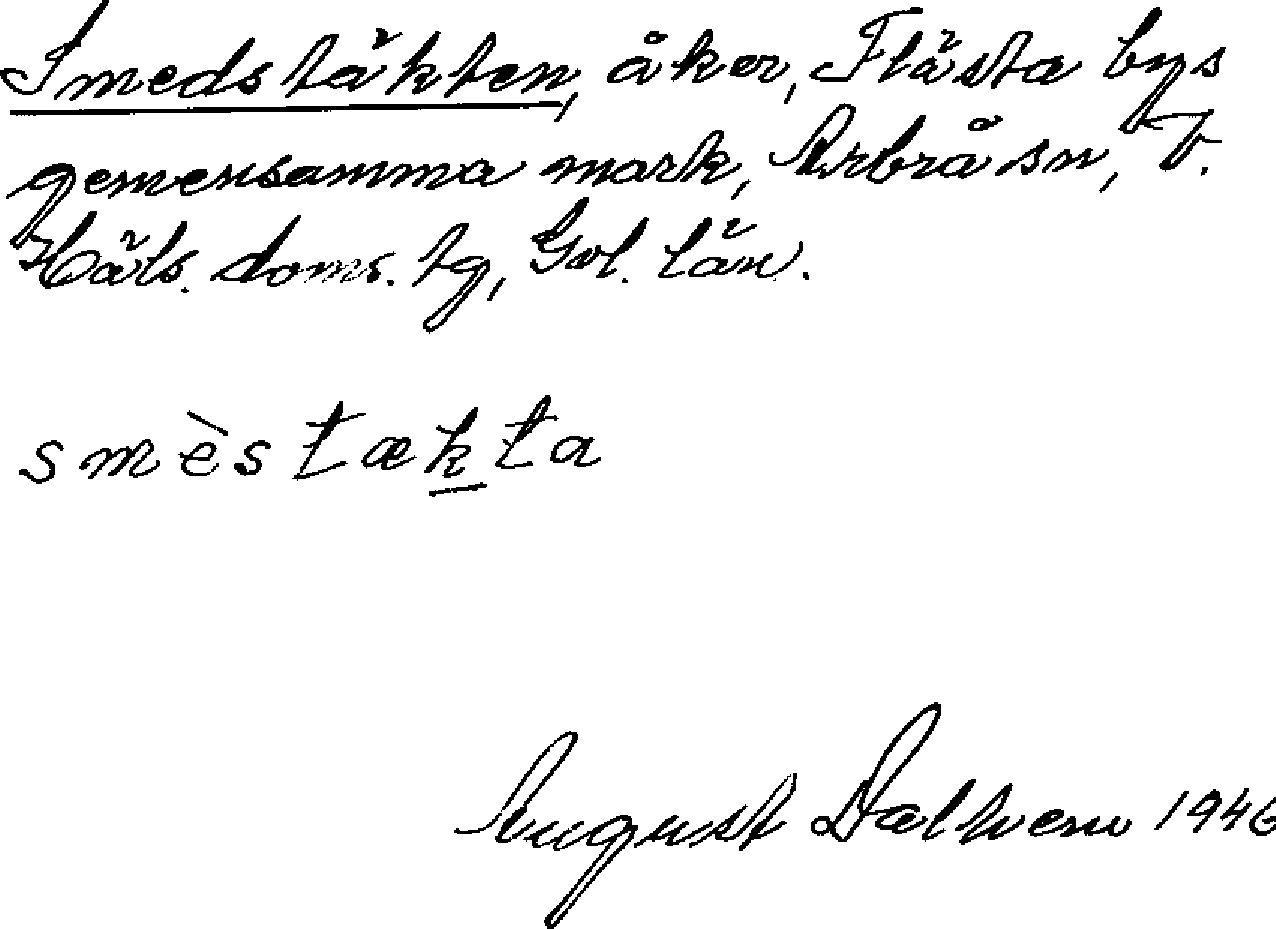 Smedstäkten, åker, Flästa bys
gemensamma mark, Arbrå sn, V.
Häls. doms. tg, Gvl. län.
smèstækta
August Dalhem 1946